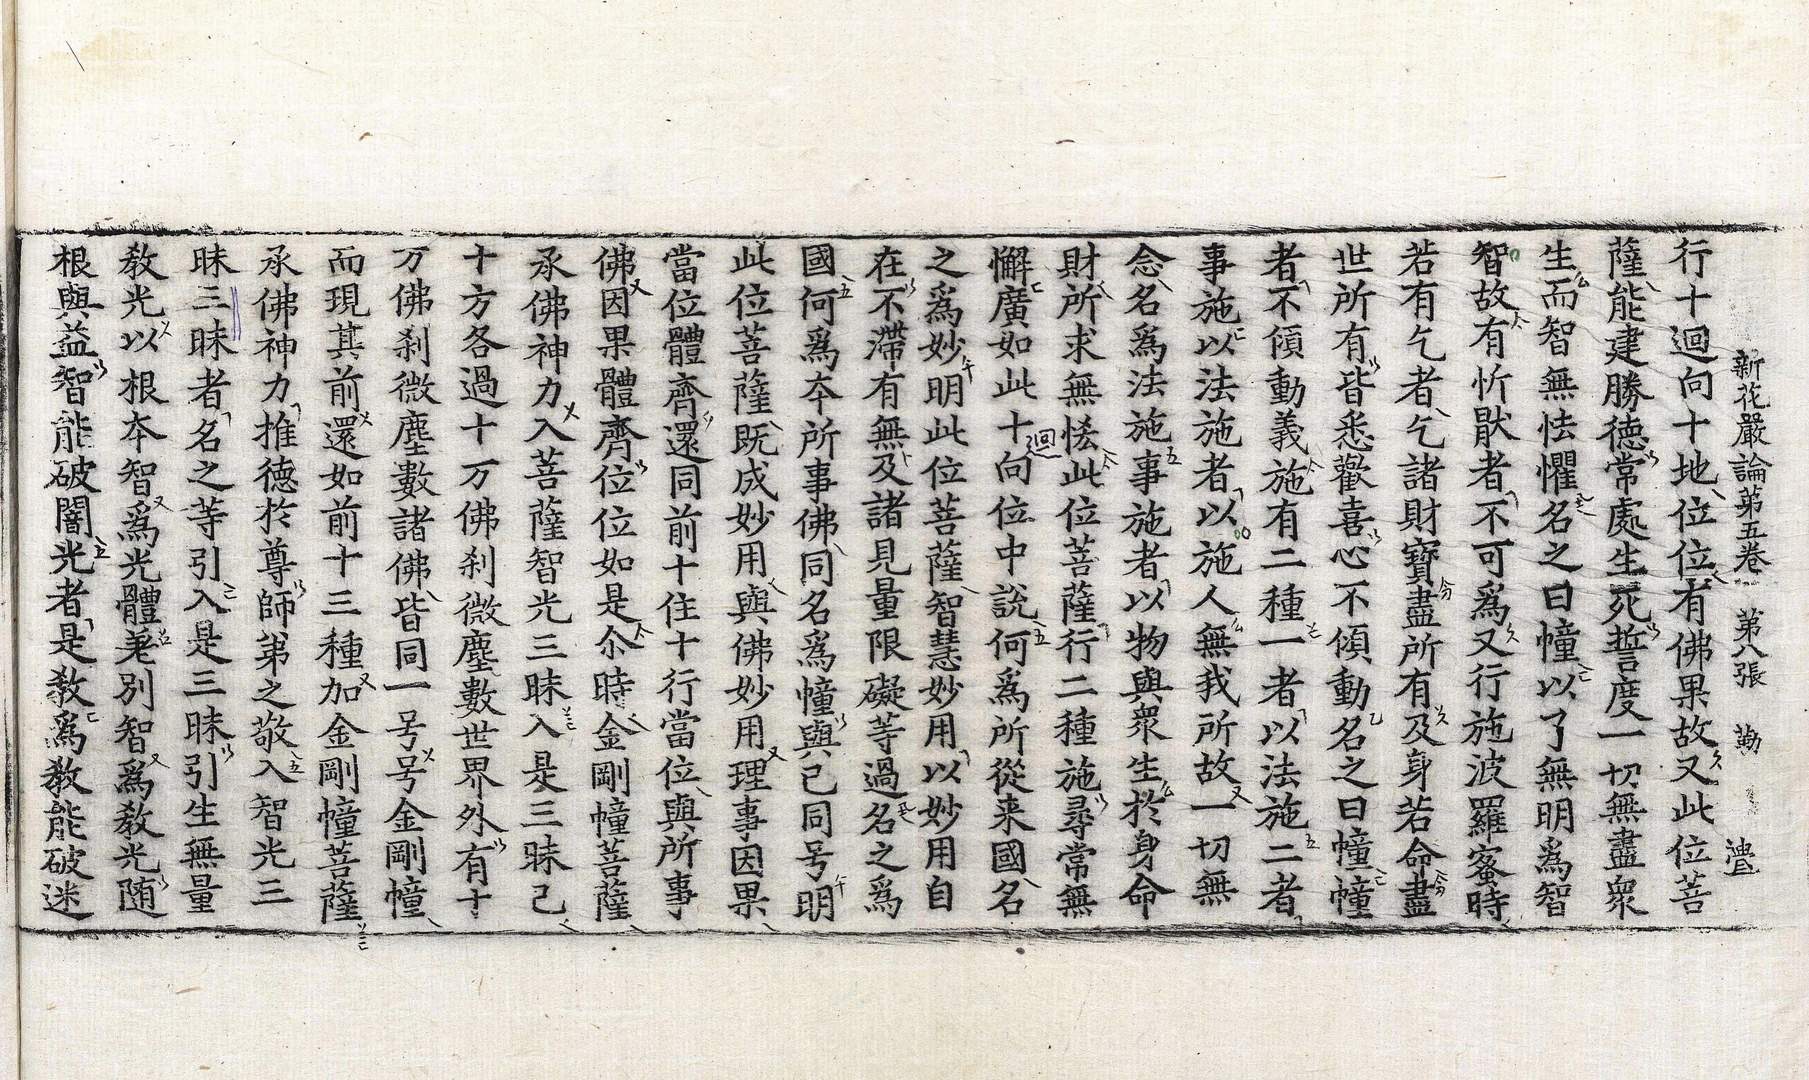 新花嚴論第五卷 第八張 勤 澧
行十迴向十地位位有佛果故又此位菩
薩能建勝德常處生死誓度一切無盡衆
生而智無怯懼名之曰幢以了無明爲智
智故有忻猒者不可爲又行施波羅蜜時
若有乞者乞諸財寶盡所有及身若命盡
世所有皆悉歡喜心不傾動名之曰幢幢
者不傾動義施有二種一者以法施二者
事施以法施者以施人無我所故一切無
念名爲法施事施者以物與衆生於身命
財所求無悋此位菩薩行二種施尋常無
懈廣如此十向位中說何爲所從来國名
之爲妙明此位菩薩智慧妙用以妙用自
在不滯有無及諸見量限礙等過名之爲
國何爲夲所事佛同名爲幢與己同号明
此位菩薩旣成妙用與佛妙用理事因果
當位體齊還同前十住十行當位與所事
佛因果體齊位位如是尒時金剛幢菩薩
承佛神力入菩薩智光三昧入是三昧已
十方各過十万佛刹微塵數世界外有十
万佛刹微塵數諸佛皆同一号号金剛幢
而現其前還如前十三種加金剛幢菩薩
承佛神力推德於尊師弟之敬入智光三
昧三昧者名之等引入是三昧引生無量
教光以根本智爲光體差別智爲教光随
根與益智能破闇光者是教爲教能破迷
迴